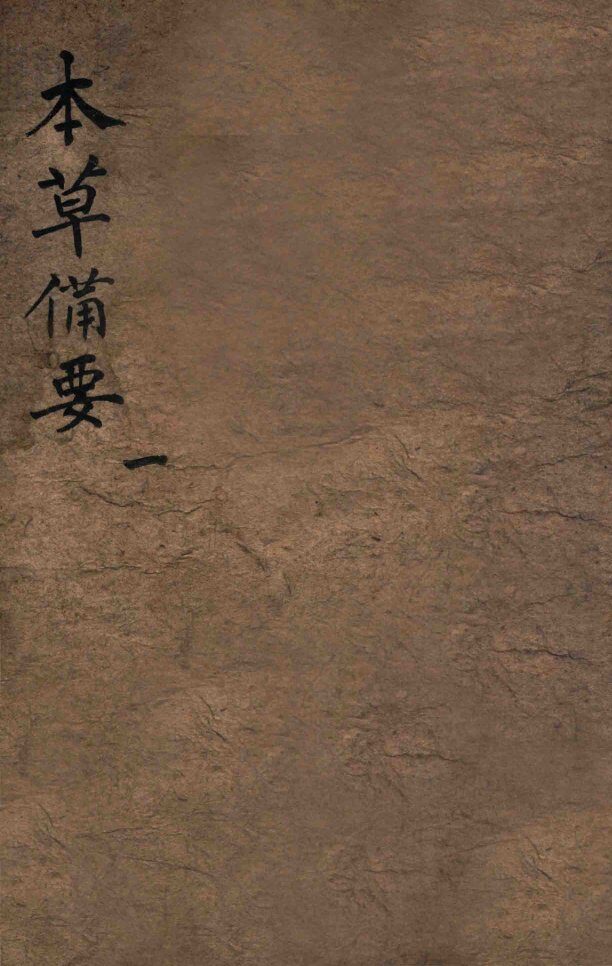 本草備要
一